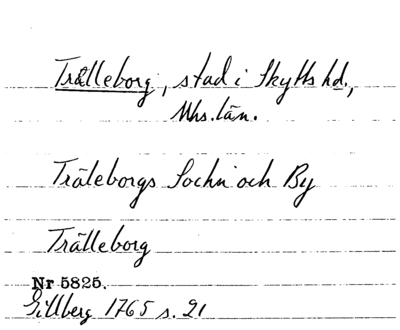 Trälleborg, stad i Skytts hd.,
Mhs. län.
Träleborgs Sochn och By
Trälleborg
Nr 5825.
Gillberg 1765 s. 21